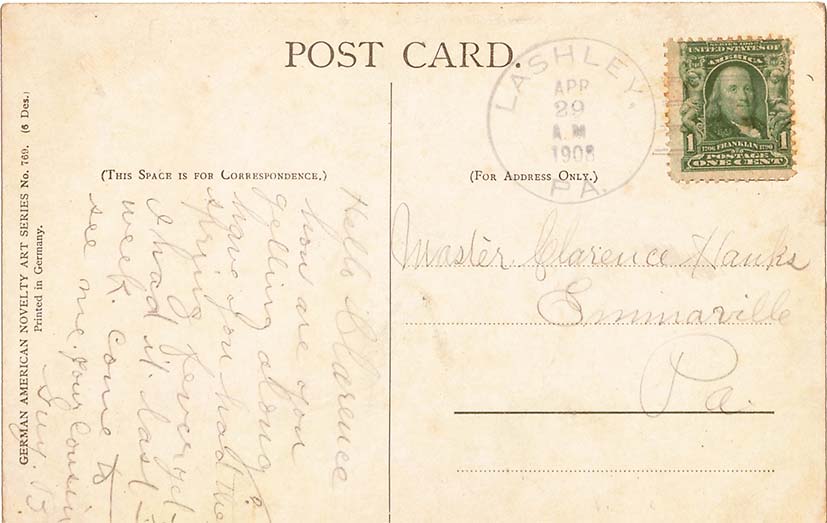 POST CARD.
(THIS SPACE IS FOR CORRESPONDENCE.)
(FOR ADDRESS ONLY.)
GERMAN AMERICAN NOVELTY ART SERIES No. 769. (6 Des.)
Printed in Germany.
LASHLEY,
APR
29
A.M
1908
PA.
SERIES 1902
UNITED STATES OF
AMERICA
1 1706 FRANKLIN 1790 1
POSTAGE
ONE CENT
Hello Clarence
how are you
getting along
have you had the
spring fever yet
I had it last
week. come to
see me. your Cousin
Guy. B
Master Clarence Hanks
Emmaville
Pa.